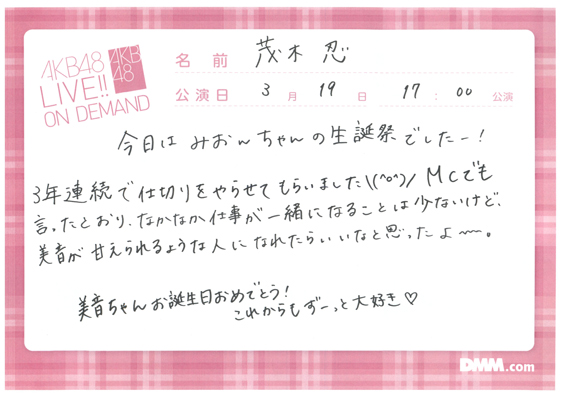 AKB48
LIVE!!
ON DEMAND
AKB
48
名前 茂木忍
公演日 3月19日 17:00公演
今日はみおんちゃんの生誕祭でしたー!
3年連続で仕切りをやらせてもらいました\(^o^)/ MCでも
言ったとおり、なかなか仕事が一緒になることは少ないけど、
美音が甘えられるような人になれたらいいなと思ったよ〜。
美音ちゃんお誕生日おめでとう!
これからもずーっと大好き♡
DMM.com